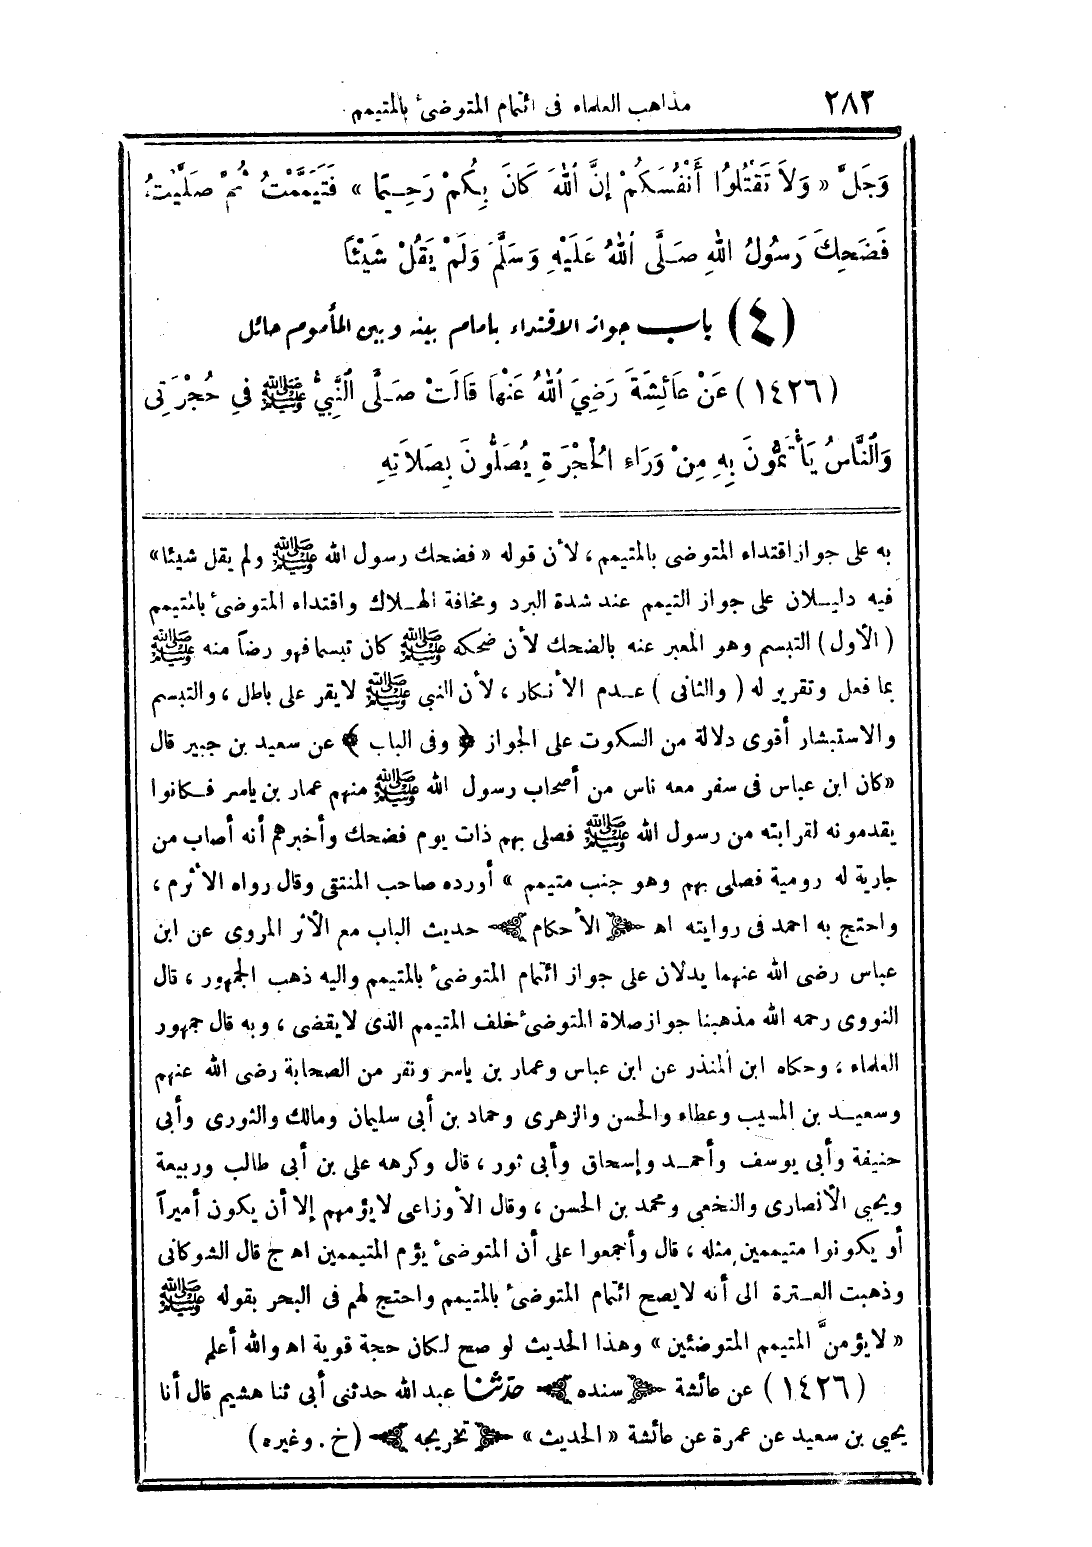 ٢٨٣ مذاهب العلماء فى ائتمام المتوضىء بالمتيمم
وَجَلَّ « وَلاَ تَقْتُلُوا أَنْفُسَكُمْ إِنَّ اللهَ كَانَ بِكُمْ رَحِيمًا » فَتَيَمَّمْتُ ثُمَّ صَلَّيْتُ،
فَضَحِكَ رَسُولُ اللهِ صَلَّى اللهُ عَلَيْهِ وَسَلَّمَ وَلَمْ يَقُلْ شَيْئًا
(٤) باب جواز الاقتداء بامام بينه وبين المأموم حائل
(١٤٢٦) عَنْ عَائِشَةَ رَضِيَ اللهُ عَنْهَا قَالَتْ صَلَّى النَّبِيُّ ﷺ فِي حُجْرَتِى
وَالنَّاسُ يَأْتَمُّونَ بِهِ مِنْ وَرَاءِ الْحُجْرَةِ يُصَلُّونَ بِصَلَاتِهِ
به على جواز اقتداء المتوضى بالمتيمم، لأن قوله « فضحك رسول الله ﷺ ولم يقل شيئا »
فيه دليلان على جواز التيمم عند شدة البرد ومخافة الهلاك واقتداء المتوضىء بالمتيمم
(الأول) التبسم وهو المعبر عنه بالضحك لأن ضحكه ﷺ كان تبسما فهو رضاً منه ﷺ
بما فعل وتقرير له (والثانى) عدم الأنكار، لأن النبى ﷺ لا يقر على باطل، والتبسم
والاستبشار أقوى دلالة من السكوت على الجواز ﴿ وفى الباب ﴾ عن سعيد بن جبير قال
«كان ابن عباس فى سفر معه ناس من أصحاب رسول الله ﷺ منهم عمار بن ياسر فكانوا
يقدمونه لقرابته من رسول الله ﷺ فصلى بهم ذات يوم فضحك وأخبرهم أنه أصاب من
جارية له رومية فصلى بهم وهو جنب متيمم » أورده صاحب المنتقى وقال رواه الأثرم،
واحتج به احمد فى روايته اهـ ﴿ الأحكام ﴾ حديث الباب مع الأثر المروى عن ابن
عباس رضى الله عنهما يدلان على جواز ائتمام المتوضىء بالمتيمم واليه ذهب الجمهور، قال
النووى رحمه الله مذهبنا جواز صلاة المتوضىء خلف المتيمم الذى لا يقضى، وبه قال جمهور
العلماء، وحكاه ابن المنذر عن ابن عباس وعمار بن ياسر ونفر من الصحابة رضى الله عنهم
وسعيد بن المسيب وعطاء والحسن والزهرى وحماد بن أبى سليمان ومالك والثورى وأبى
حنيفة وأبى يوسف وأحمد وإسحاق وأبى ثور، قال وكرهه على بن أبى طالب وربيعة
ويحيى الأنصارى والنخعى ومحمد بن الحسن، وقال الأوزاعى لا يؤمهم إلا أن يكون أميراً
أو يكونوا متيممين مثله، قال وأجمعوا على أن المتوضىء يؤم المتيممين اهـ ج قال الشوكانى
وذهبت العترة الى أنه لا يصح ائتمام المتوضىء بالمتيمم واحتج لهم فى البحر بقوله ﷺ
« لا يؤمنَّ المتيمم المتوضئين » وهذا الحديث لو صح لكان حجة قوية اهـ والله أعلم
(١٤٢٦) عن عائشة ﴿ سنده ﴾ حدثنا عبد الله حدثنى أبى ثنا هشيم قال أنا
يحيى بن سعيد عن عمرة عن عائشة « الحديث » ﴿ تخريجه ﴾ (خ. وغيره)